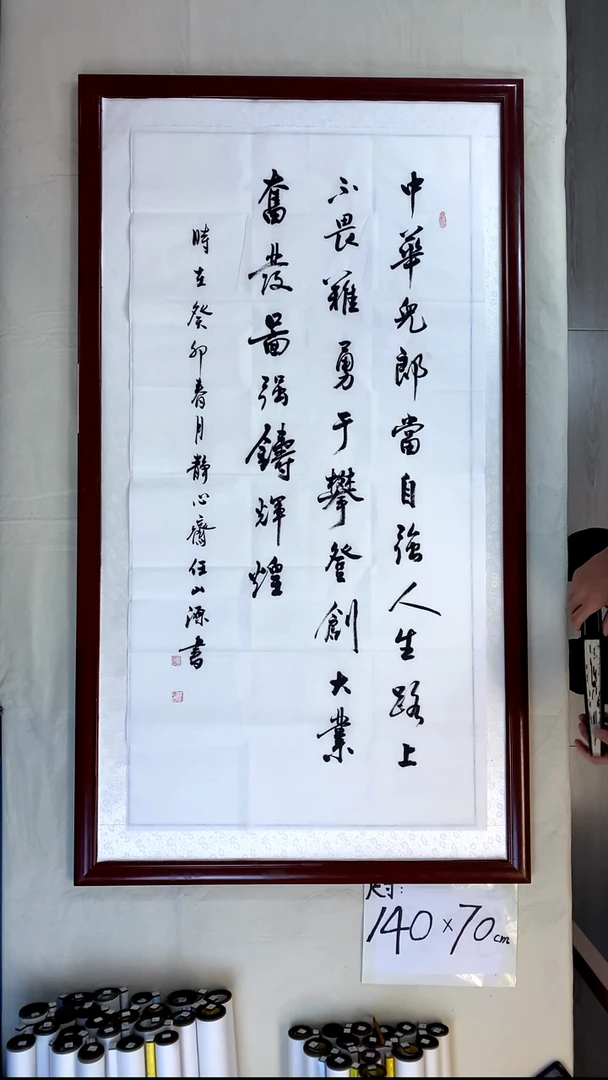 中華兒郎當自強人生路上
不畏難勇于攀登創大業
奮發啚强鑄輝煌
時在癸卯春月靜心齋任山源書
尺寸:
140×70cm